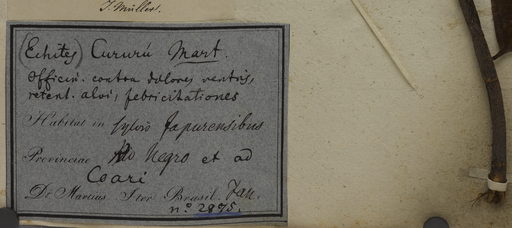 J. Müller.
(Echites) Cururú Mart.
Officin. contra dolores ventris,
retent. alvi, febricitationes
Habitat in sylvis Japurensibus
Provinciae Rio Negro et ad
Coari
Dr. Martius. Iter Brasil. Jan.
n.° 2875.